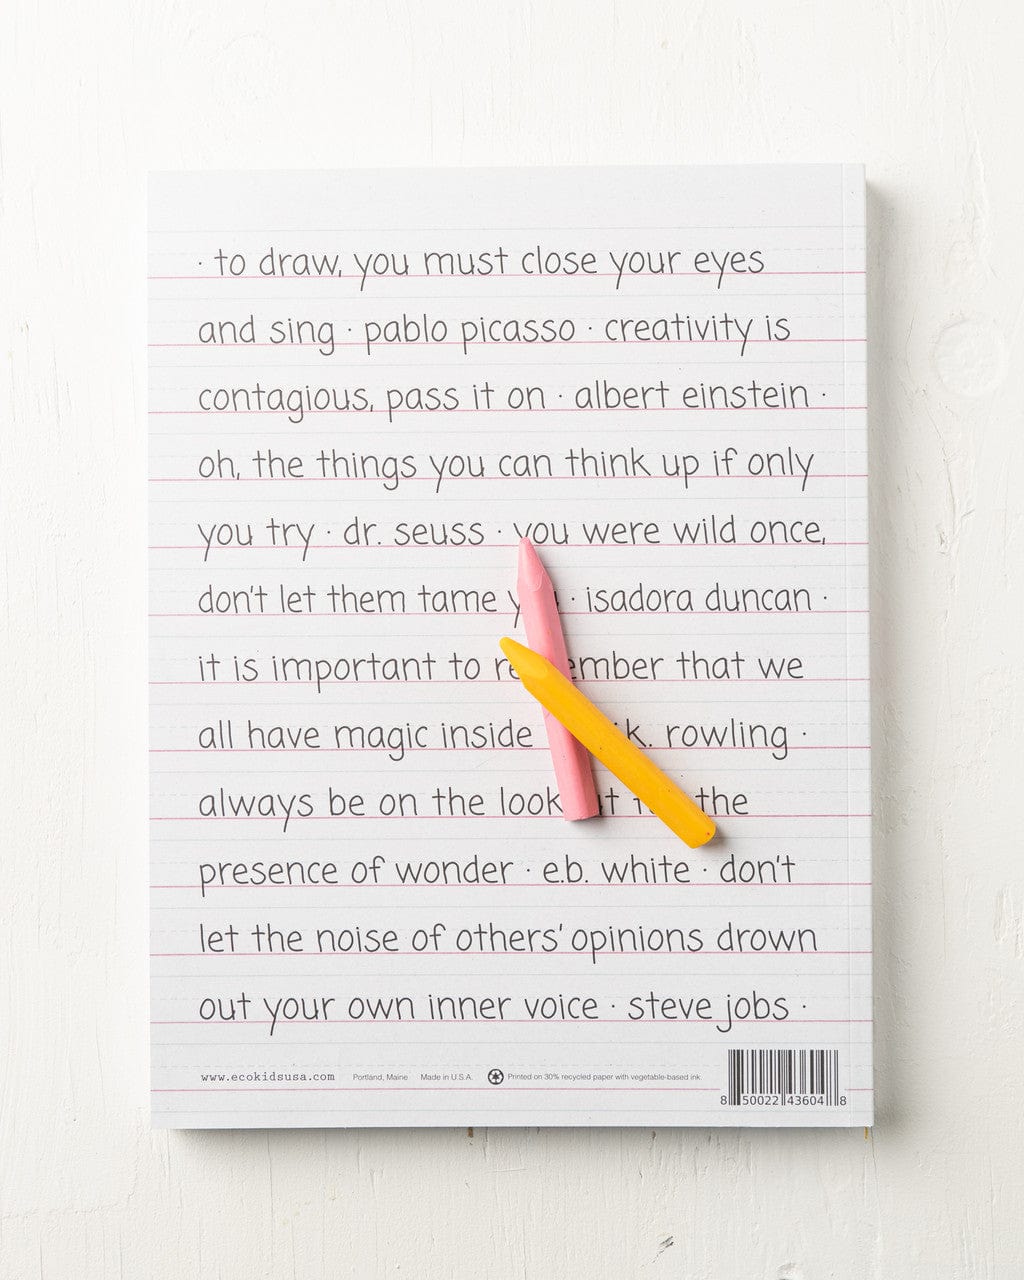 · to draw, you must close your eyes
and sing · pablo picasso · creativity is
contagious, pass it on · albert einstein ·
oh, the things you can think up if only
you try · dr. seuss · you were wild once,
don't let them tame · isadora duncan ·
it is important to remember that we
all have magic inside k. rowling ·
always be on the the
presence of wonder · e.b. white · don't
let the noise of others' opinions drown
out your own inner voice · steve jobs ·
www.ecokidsusa.com Portland, Maine Made in U.S.A. Printed on 30% recycled paper with vegetable-based ink.
8 50022 43604 8